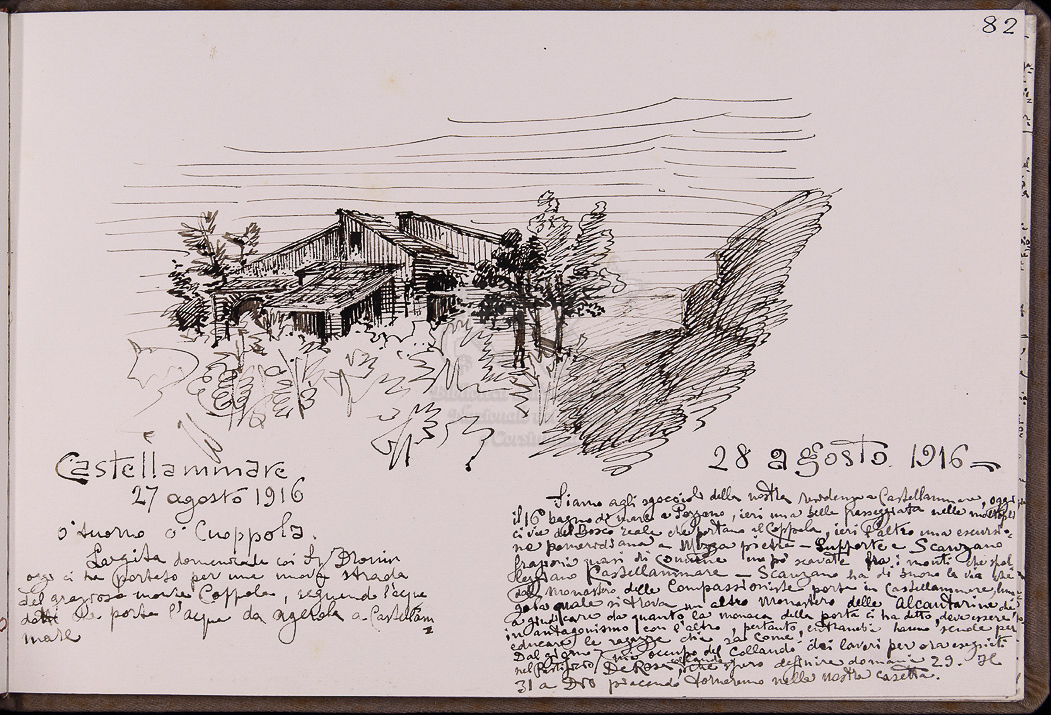 82
Castellammare
27 agosto 1916
o' tuorno o' Cuoppola.
La gita domenicale coi
oggi ci ha portato per una nuova strada
del grazioso monte Coppola, seguendo l'acque
dotto che porta l'acqua da Agerola a Castellam
mare
28 agosto 1916
Siamo agli sgoccioli della nostra residenza a Castellammare, oggi
il 16° bagno di mare a Pozzano, ieri una bella passeggiata nelle
ci vie del Bosco reale che portano al Coppola, ieri l'altro una escursio-
ne pomeridiana a Mezza pietra - Supporte e Scanzano
frazioni quasi di Comune un po' scavate fra i monti che
Castellammare. Scanzano ha di buono la via che
dal Monastero delle Compassioniste porta in Castellammare,
la quale si trova un altro Monastero delle Alcantarine
a giudicare da quanto la monaca della porta ci ha detto, deve essere
in antagonismo con l'altro, pertanto, entrambi hanno scuole per
educare le ragazze che sa come.
Dal giorno mi occupo del Collaudo dei lavori per ora eseguiti
nel De Rosa spero definire domani 29. Il
31 a Dio piacendo torneremo nella nostra casetta.